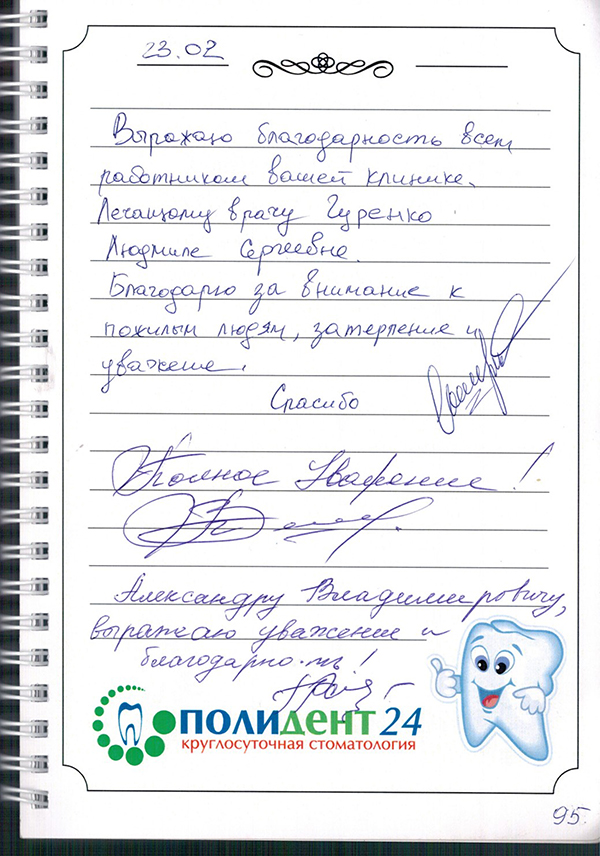 23.02
Выражаю благодарность всем
работникам вашей клинике.
Лечащому врачу Гуренко
Людмиле Сергеевне.
Благодарю за внимание к
пожилым людям, за терпение и
уважение.
Спасибо
Полное Уважение!
Александру Владимировичу,
выражаю уважение и
благодарно-ть!
ПОЛИДЕНТ 24
круглосуточная стоматология
95.